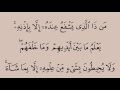 مَن ذَا ٱلَّذِى يَشْفَعُ عِندَهُۥٓ إِلَّا بِإِذْنِهِۦ
يَعْلَمُ مَا بَيْنَ أَيْدِيهِمْ وَمَا خَلْفَهُمْ
وَلَا يُحِيطُونَ بِشَىْءٍ مِّنْ عِلْمِهِۦٓ إِلَّا بِمَا شَآءَ